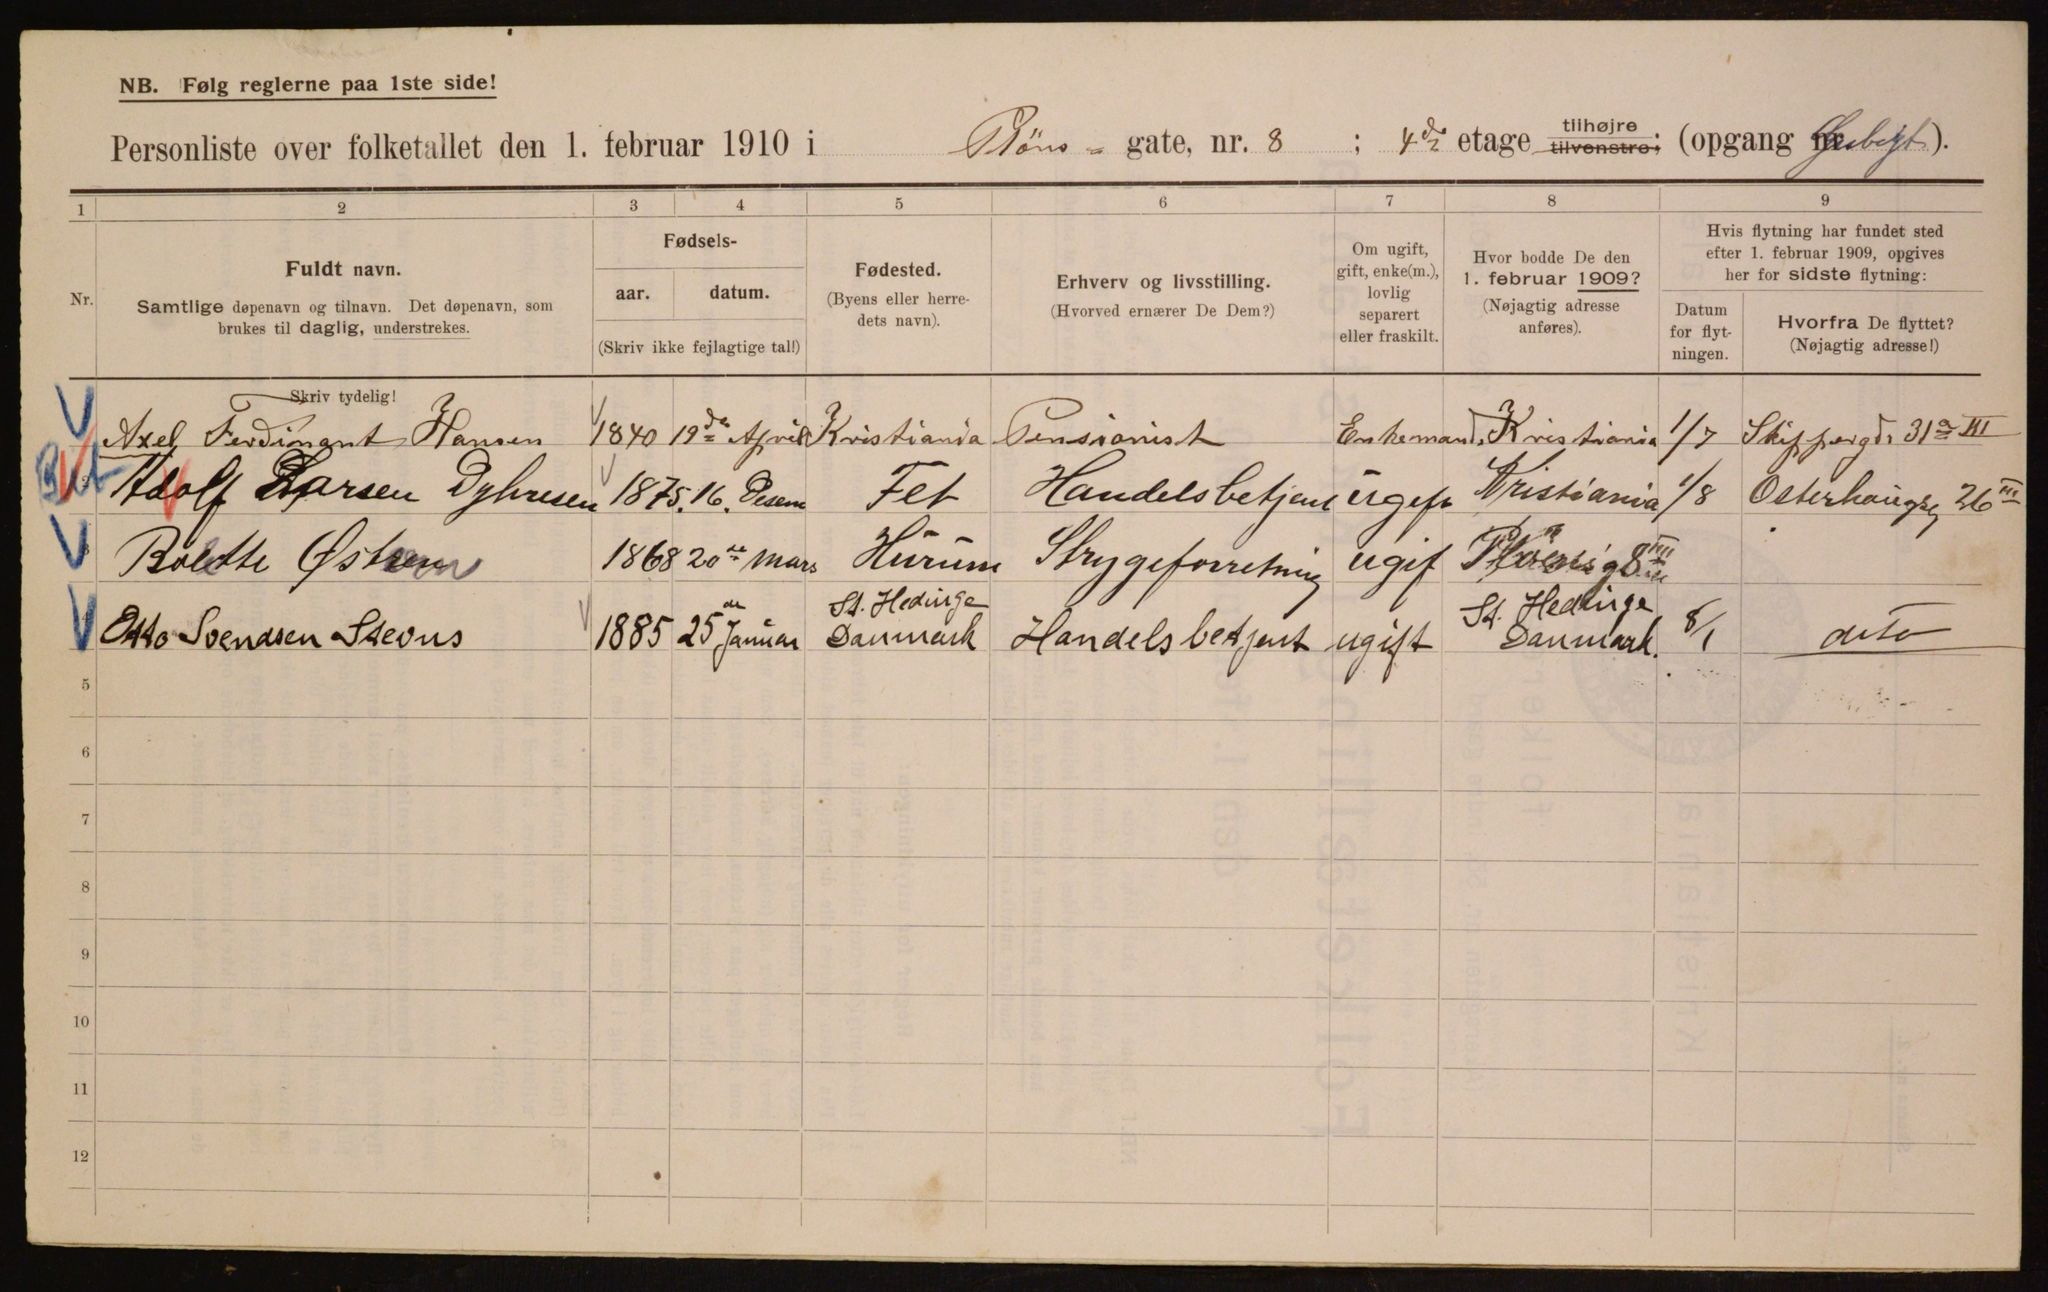 NB. Følg reglerne paa 1ste side!
Personliste over folketallet den 1. februar 1910 i Pløns- gate, nr. 8 ; 4de etage tilhøjre tilvenstre; (opgang nr. ).
1 2 3 4 5 6 7 8 9
Nr.
Fuldt navn.
Samtlige døpenavn og tilnavn. Det døpenavn, som
brukes til daglig, understrekes.
Fødsels-
aar. datum.
(Skriv ikke fejlagtige tal!)
Fødested.
(Byens eller herre-
dets navn).
Erhverv og livsstilling.
(Hvorved ernærer De Dem?)
Om ugift,
gift, enke(m.),
lovlig
separert
eller fraskilt.
Hvor bodde De den
1. februar 1909?
(Nøjagtig adresse
anføres).
Hvis flytning har fundet sted
efter 1. februar 1909, opgives
her for sidste flytning:
Datum
for flyt-
ningen.
Hvorfra De flyttet?
(Nøjagtig adresse!)
Skriv tydelig!
Axel Ferdinant Hansen 1840 19de April Kristiania Pensionist Enkemand Kristiania 1/7 Skippergd. 31a III
Adolf Larsen Dyhresen 1875. 16. Desem Fet Handelsbetjent ugift Kristiania 1/8 Østerhausg 26 III
3 Bolette Østern 1868 20de Mars Hurum Strygeforretning ugif Pløensg 8 IIII
Otto Svendsen Stevns 1885 25de Januar St. Hedinge Danmark Handelsbetjent ugift St. Hedinge Danmark. 8/1 dito
5
6
7
8
9
10
11
12